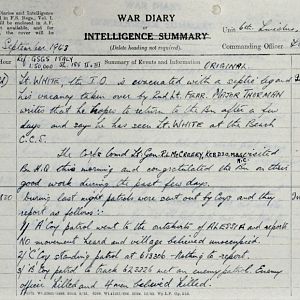 WAR DIARY
OF
INTELLIGENCE SUMMARY
(Delete heading not required).
Diaries and Intelligence
in F.S. Regs., Vol. I.
Unit 6th Lincolns
Commanding Officer
September 1943
Ref GSGS ITALY
1:50,000
Summary of Events and Information
ORIGINAL
Lt. WHITE, the T.O. is evacuated with a septic leg and
his vacancy taken over by 2nd Lt. FARR. MAJOR THORMAN
writes that he hopes to return to the Bn after a few
days and say he has seen Lt. WHITE at the Beach
C.C.S.
The Corps Comd Lt. Gen. R.L. McCREERY, visited
Bn H.Q. this morning and congratulated the Bn on their
good work during the past few days.
During last night patrols were sent out by Coys and they
report as follows:-
1) 'A' Coy patrol went to the outskirts of ALESSIA and report:
No movement heard and village believed unoccupied.
2) 'C' Coy standing patrol at 613306 - Nothing to report.
3) 'A' Coy patrol to track met an enemy patrol. Enemy
officer killed and 4 men believed killed.